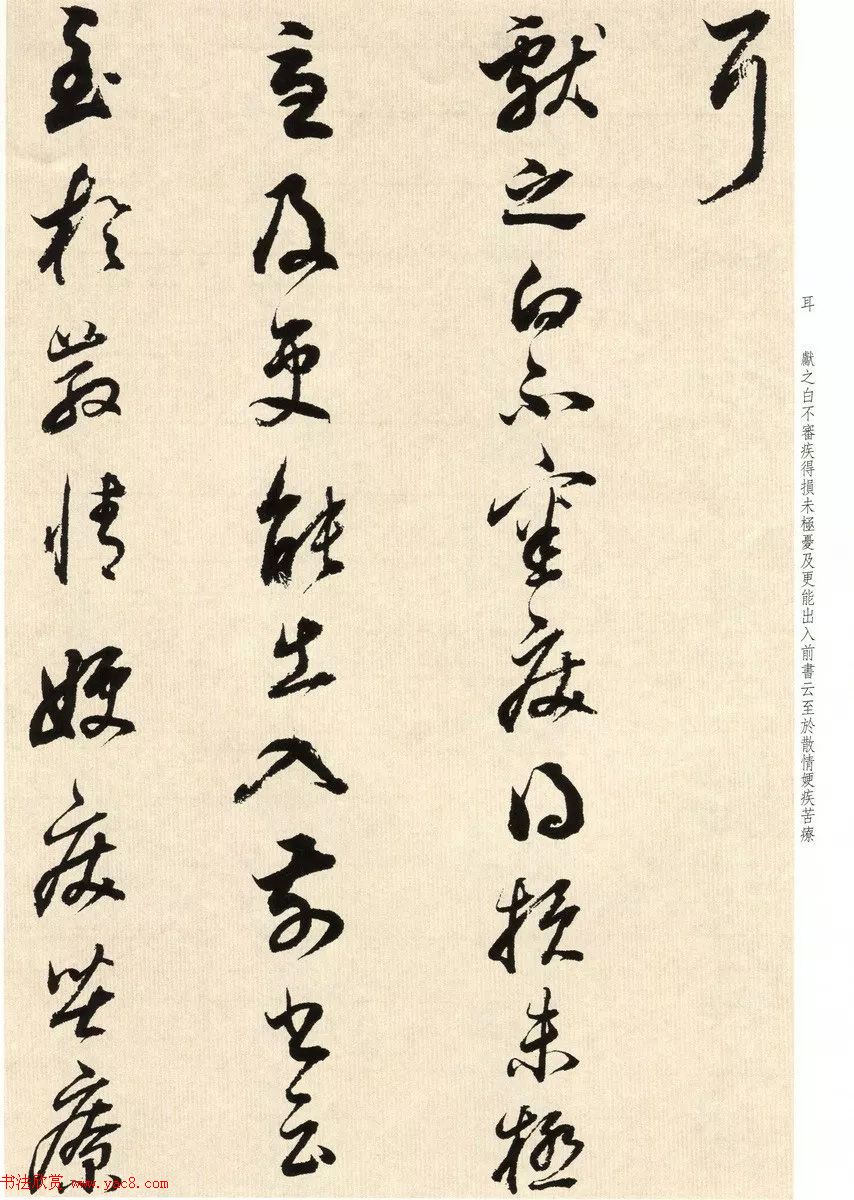 耳
獻之白不審疾得損未極
憂及更能出入前書云
至於散情㛐疾苦療
耳 獻之白不審疾得損未極憂及更能出入前書云至於散情㛐疾苦療
书法欣赏 www.yac8.com